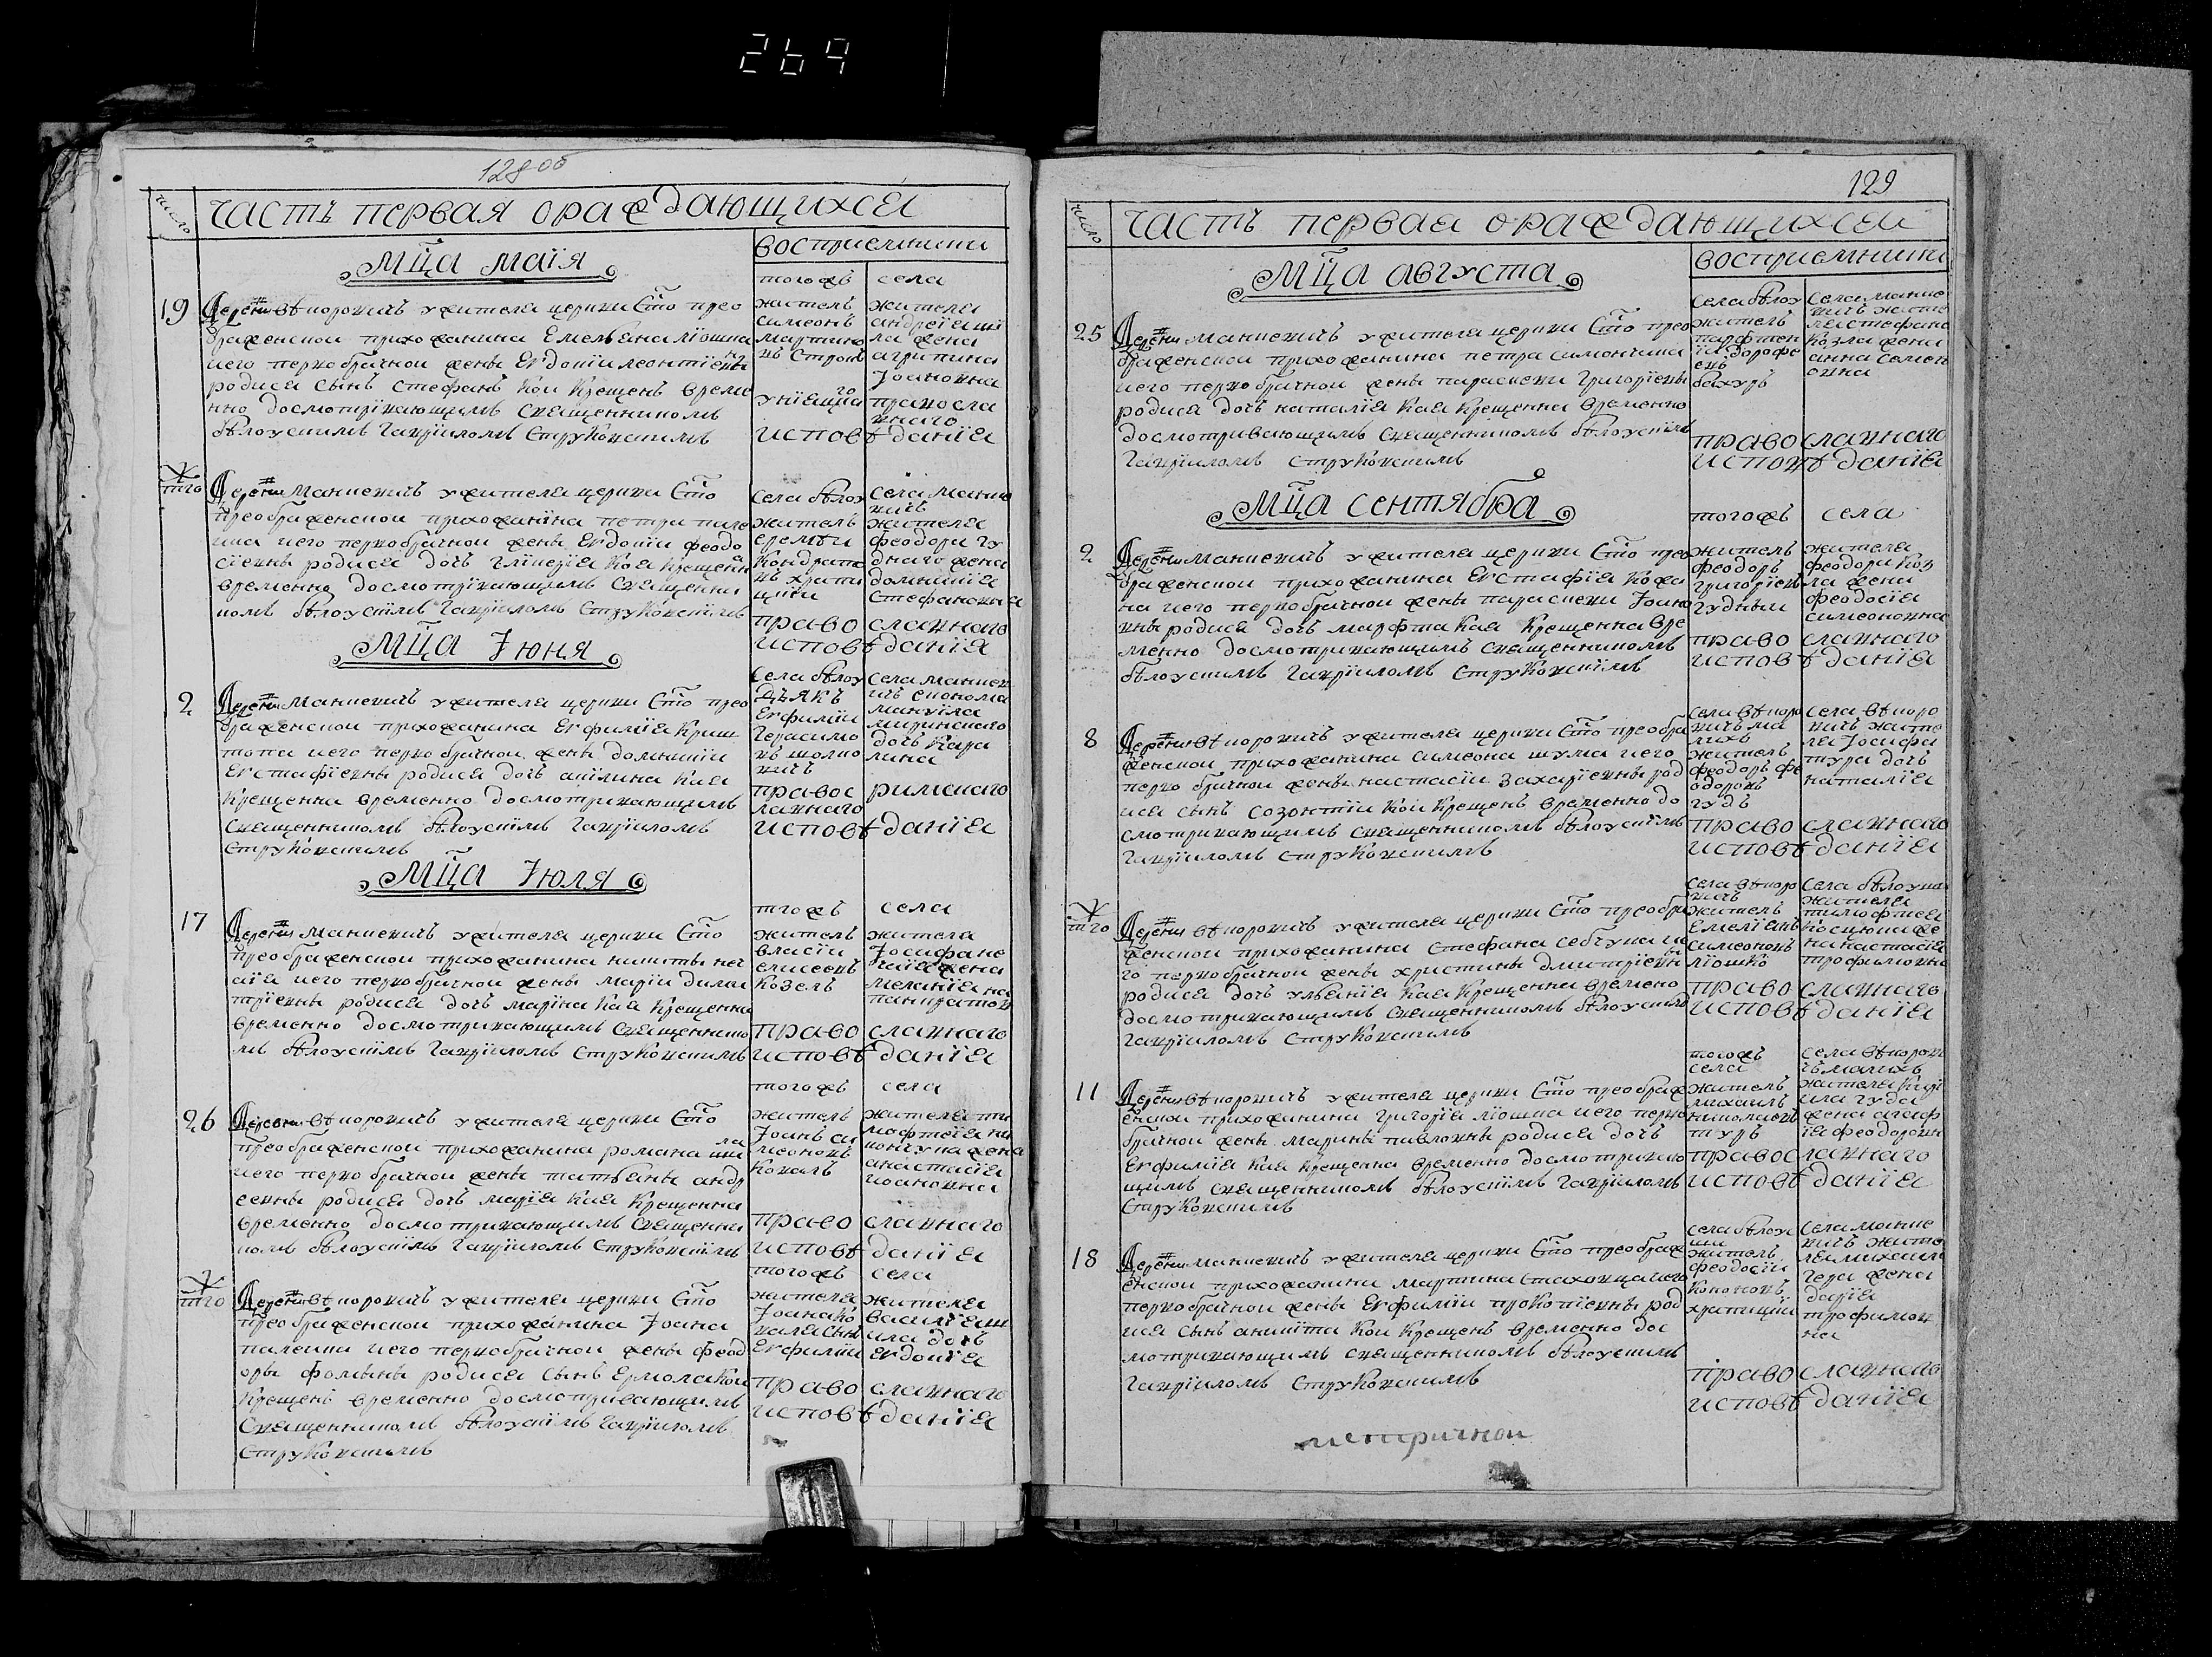 264
128об
число
часть первая ораждающихся
восприемники
мц̃а маїя
19
Деревни Вѣпоровичъ ужителя церкви Ст̃о прео
браженской прихожанина Емельѣна лїошка
иего первобрачной жены Евдокїи леонтїевы
родися сынъ стефанъ кой крещенъ време
нно досмотрѣвающимъ священникомъ
бѣлоускимъ гаврїиломъ струковскимъ
тогожъ села
житель
симеонъ
мартино
въ строк
унїацкаго
жителя
андреїя ши
ла жена
агрипина
Іоановна
правосла
внаго
исповѣданїя
тгож
Деревни маниевичъ ужителя церкви Ст̃о
преображенской прихожанина петра
иего первобрачной жены Евдокїи феодо
сїевны родися дочъ гликерїя кая крещенна
временно досмотрѣвающимъ священни
комъ бѣлоускимъ гаврїиломъ струковскимъ
села бѣлоу
житель
еремѣй
кондрато
въ храпи
цкїй
села мание
вичъ
жителя
феодора гу
днаго жена
домникїя
стефановна
православнаго
исповѣданїя
мц̃а Іюня
2
Деревни маниевичъ ужителя церкви Ст̃о прео
браженской прихожанина Евфимїя криш
топа иего первобрачной жены домникїи
Евстафїевны родися дочъ акїлина кая
крещенна временно досмотрѣвающимъ
священникомъ бѣлоускимъ гаврїиломъ
струковскимъ
села бѣлоу
дьякъ
Евфимїй
герасимо
въ шолко
вичъ
правос
лавнаго
села маниев
ичъ економа
мануїла
дочъ каро
лина
римскаго
исповѣданїя
мц̃а Іюля
17
Деревни маниевичъ ужителя церкви Ст̃о
преображенской прихожанина никиты
иего первобрачной жены марїи дими
трїевны родися дочъ марїна кая крещенна
временно досмотрѣвающимъ священнико
мъ бѣлоускимъ гаврїиломъ струковскимъ
тгожъ села
житель
власїй
елисеевъ
козелъ
жителя
Іосифа не
чаїя жена
меланїя
панкратов
православнаго
исповѣданїя
26
Деревни Вѣпоровичъ ужителя церкви Ст̃о
преображенской прихожанина романа шила
иего первобрачной жены татьѣны андр
еевны родися дочъ марїя кая крещенна
временно досмотрѣвающимъ священни
комъ бѣлоускимъ гаврїиломъ струковскимъ
тогожъ села
житель
Іоанъ си
меоновъ
коваль
жителя ти
мофтея
жена
анастасїя
иоановна
православнаго
исповѣданїя
тгож
Деревни Вѣпоровичъ ужителя церкви Ст̃о
преображенской прихожанина Іоана
палеики иего первобрачной жены феод
оры фомины родися сынъ Ермолай кой
крещенъ временно досмотривающимъ
священникомъ бѣлоускимъ гаврїиломъ
струковскимъ
тогожъ села
жителя
Іоана ко
валя сынъ
Евфимїй
жителя
василїя ш
ила дочъ
Евдокїя
православнаго
исповѣданїя
129
число
часть первая ораждающихся
восприемники
мц̃а августа
25
Деревни маниевичъ ужителя церкви Ст̃о прео
браженской прихожанина петра симончика
иего первобрачной жены параскеви григорїевы
родися дочъ наталїя кая крещенна временно
досмотривающимъ священникомъ бѣлоускимъ
гаврїиломъ струковскимъ
села бѣлоу
житель
парфтен
їй дорофе
евъ
бахуръ
села мание
вичъ жите
ля стефана
козла жена
анна семен
овна
православнаго
исповѣданїя
мц̃а сентября
2
Деревни маниевичъ ужителя церкви Ст̃о прео
браженской прихожанина Евстафїя кожа
на иего первобрачной жены параскеви Іоано
вны родися дочъ марфта кая крещенна вре
менно досмотрѣвающимъ священникомъ
бѣлоускимъ гаврїиломъ струковскимъ
тогожъ села
житель
феодоръ
григорїевъ
гудный
жителя
феодора коз
ла жена
феодосїя
симеоновна
православнаго
исповѣданїя
8
Деревни Вѣпоровичъ ужителя церкви Ст̃о преобра
женской прихожанина симеона шума иего
первобрачной жены настасїи захарїевны род
ися сынъ созонтїй кой крещенъ временно до
смотрѣвающимъ священникомъ бѣлоускимъ
гаврїиломъ струковскимъ
села Вѣпоро
вичъ ма
лихъ
житель
феодоръ фе
одоровъ
гудъ
села Вѣпоро
вичъ жите
ля Іосифа
тура дочъ
наталїя
православнаго
исповѣданїя
тгож
Деревни Вѣпоровичъ ужителя церкви Ст̃о преобра
женской прихожанина стефана себчука ие
го первобрачной жены христины дмитрїевны
родися дочъ ульѣнїя кая крещенна временно
досмотрѣвающимъ священникомъ бѣлоускимъ
гаврїиломъ струковскимъ
села Вѣпоро
вичъ
житель
Емелїанъ
симеоновъ
лїошко
села бѣлоуша
жителя
тимофтея
косцюка же
на настасїя
трофимовна
православнаго
исповѣданїя
11
Деревни Вѣпоровичъ ужителя церкви Ст̃о преображ
енской прихожанина григорїя лїошка иего перво
брачной жены марины павловны родися дочъ
Евфимїя кая крещенна временно досмотрѣваю
щимъ священникомъ бѣлоускимъ гаврїиломъ
струковскимъ
тогожъ
села
житель
михаилъ
николаевъ
туръ
села Вѣпорови
чъ малихъ
жителя кири
ила гуда
жена агаф
їя феодоровн
православнаго
исповѣданїя
18
Деревни маниевичъ ужителя церкви Ст̃о преображ
енской прихожанина мартина стаховца иего
первобрачной жены Евфимїи прокопїевны род
ися сынъ аникїта кой крещенъ временно дос
мотрѣвающимъ священникомъ бѣлоускимъ
гаврїиломъ струковскимъ
села бѣлоу
ши
житель
феодосїй
кононовъ
храпицкїй
села мание
вичъ жите
ля михаила
гера жена
дарїя
трофимов
на
православнаго
исповѣданїя
метричной